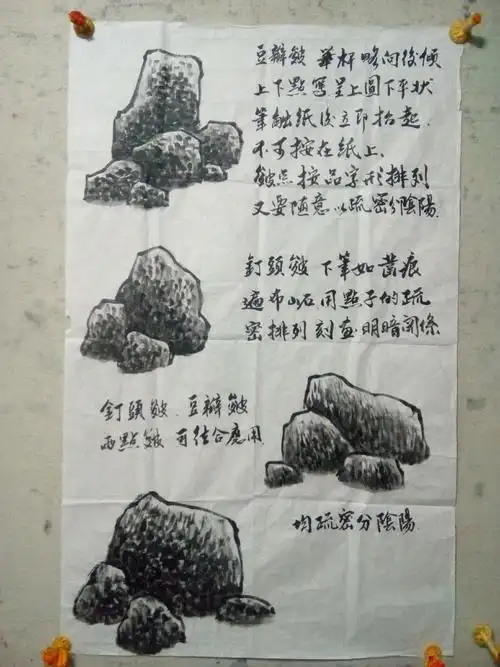 豆瓣皴 筆杆略向後傾
上下點寫呈上圓下平狀
筆触紙後立即抬起.
不可按在紙上.
皴點按品字形排列
又要随意以疏密分陰陽.
釘頭皴 下筆如苗痕
遍布山石.用點子的疏
密排列刻画.明暗関係
釘頭皴.豆瓣皴
雨點皴 可结合應用
均疏密分陰陽